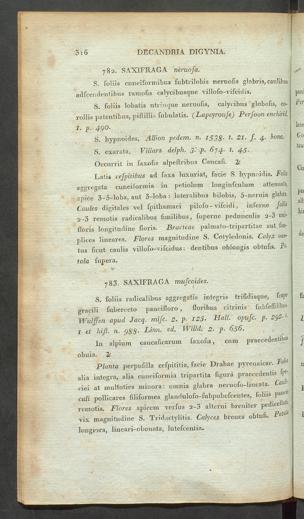 316 DECANDRIA DIGYNIA.
782. SAXIFRAGA nervosa.
S. foliis cuneiformibus subtrilobis nervosis glabris, caulibus
adscendentibus ramosis calycibusque villoso-viscidis.
S. foliis lobatis utrinque nervosis, calycibus globosis, co-
rollis patentibus, pistillis subulatis. (Lapeyrouse) Persoon enchirid.
1. p. 490.
S. hypnoides. Allion pedem. n. 1538. t. 21. f. 4. bene.
S. exarata. Villars delph. 3. p. 674. t. 45.
Occurrit in saxosis alpestribus Caucasi. ♃
Latis cespitibus ad saxa luxuriat, facie S. hypnoidis. Folia
aggregata cuneiformis in petiolum longiusculum attenuata,
apice 3-5-loba, aut 3-loba: loteralibus bilobis, 5-nervia glabra.
Caules digitales vel spithamaei piloso-viscidi, inferne foliis
2-3 remotis radicalibus similibus, superne pedunculis 2-3 uni-
floris longitudine floris. Bracteae palmato-tripartitae aut sim-
plices lineares. Flores magnitudine S. Cotyledonis. Calyx
tus sicut caulis villoso-viscidus: dentibus oblongis obtusis. Pe-
tala supera.
783. SAXIFRAGA muscoides.
S. foliis radicalibus aggregatis integris trifidisque, scapo
gracili suberecto paucifloro, floribus citrinis subsessilibus
Wulffen apud Jacq. misc. 2. p. 125. Hall. opusc. p. 292. t.
1 et hist. n. 988. Linn. ed. Willd. 2. p. 656.
In alpium caucasicarum saxosa, cum praecedentibus
obuia. ♃
Planta perpusilla cespititia, facie Drabae pyrenaicae. Folia
alia integra, alia cuneiformia tripartita figurâ praecedentis spe-
ciei at multoties minora: omnia glabra nervoso-lineata. Cauli-
culi pollicares filiformes glanduloso-subpubescentes, foliis paucis
remotis. Flores apicem versus 2-3 alterni breviter pedicellati,
vix magnitudine S. Tridactylitis. Calyces breues obtusi. Petala
longiora, lineari-obouata, lutescentia.